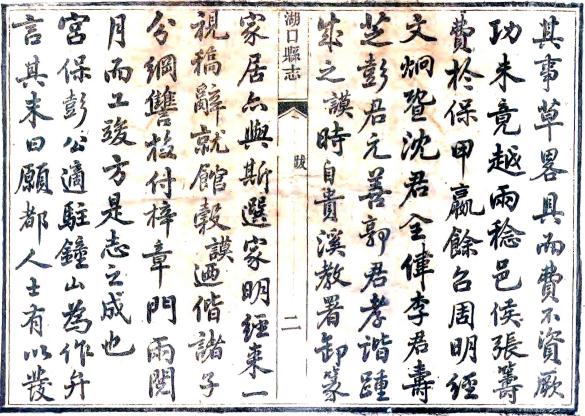 其事草畧具而費不資厥
功未竟越兩稔邑侯張籌
費於保甲贏餘召周明經
文炯暨沈君全偉李君壽
芝彭君元善郭君孝諧踵
成之謨時自貴溪教署卸篆
湖口縣志
跋
二
家居亦與斯選家明經來一
視稿辭就館穀謨迺偕諸子
分綱讐校付梓章門兩閱
月而工竣方是志之成也
宮保彭公適駐鐘山為作弁
言其末曰願都人士有以發